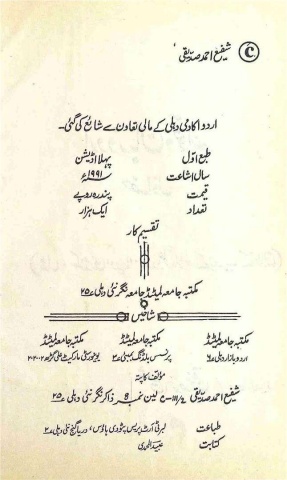 © شفیع احمد صدیقی
اردو اکادمی دہلی کے مالی تعاون سے شائع کی گئی۔
طبع اوّل پہلا اڈیشن
سال اشاعت ۱۹۹۱ء
قیمت پندرہ روپے
تعداد ایک ہزار
تقسیم کار
مکتبہ جامعہ لمیٹڈ جامعہ نگر نئی دہلی ۲۵
شاخیں
مکتبہ جامعہ لمیٹڈ مکتبہ جامعہ لمیٹڈ مکتبہ جامعہ لمیٹڈ
اردو بازار دہلی ۶ پرنسس بلڈنگ بمبئی ۳ یونیورسٹی مارکیٹ علی گڑھ ۲۰۲۰۰۲
مؤلف کا پتہ
شفیع احمد صدیقی لین نمبر 8 ذاکر نگر نئی دہلی ۲۵
طباعت لبرٹی آرٹ پریس پٹودی ہاؤس، دریا گنج نئی دہلی ۲
کتابت